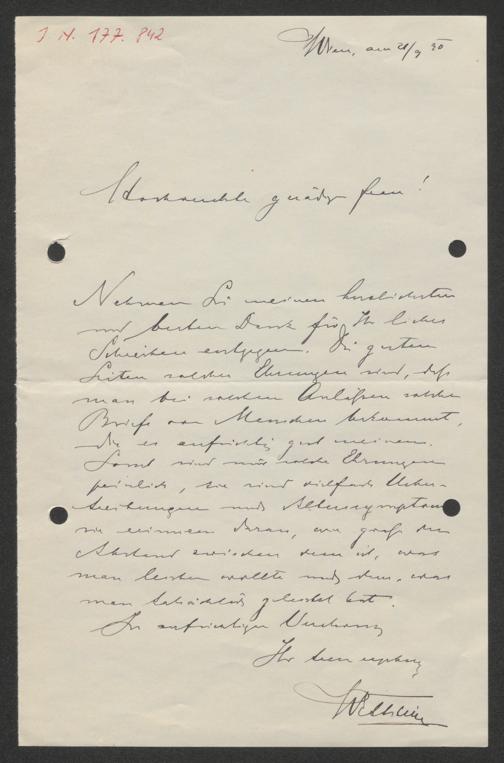 I N. 177.842
Wien, am 28/9 30
Hochverehrte gnädige Frau!
Nehmen Sie meinen herzlichsten
und besten Dank für Ihr liebes
Schreiben entgegen. Die guten
Seiten solcher Ehrungen sind, daß
man bei solchen Anläßen solche
Briefe von Menschen bekommt,
die es aufrichtig gut meinen.
Sonst sind mir solche Ehrungen
peinlich, sie sind vielfach Ueber-
treibungen und Alterssymptome
sie erinnern daran, wie groß der
Abstand zwischen dem ist, was
man leisten wollte und dem, was
man tatsächlich geleistet hat.
In aufrichtiger Verehrung
Ihr ergebener